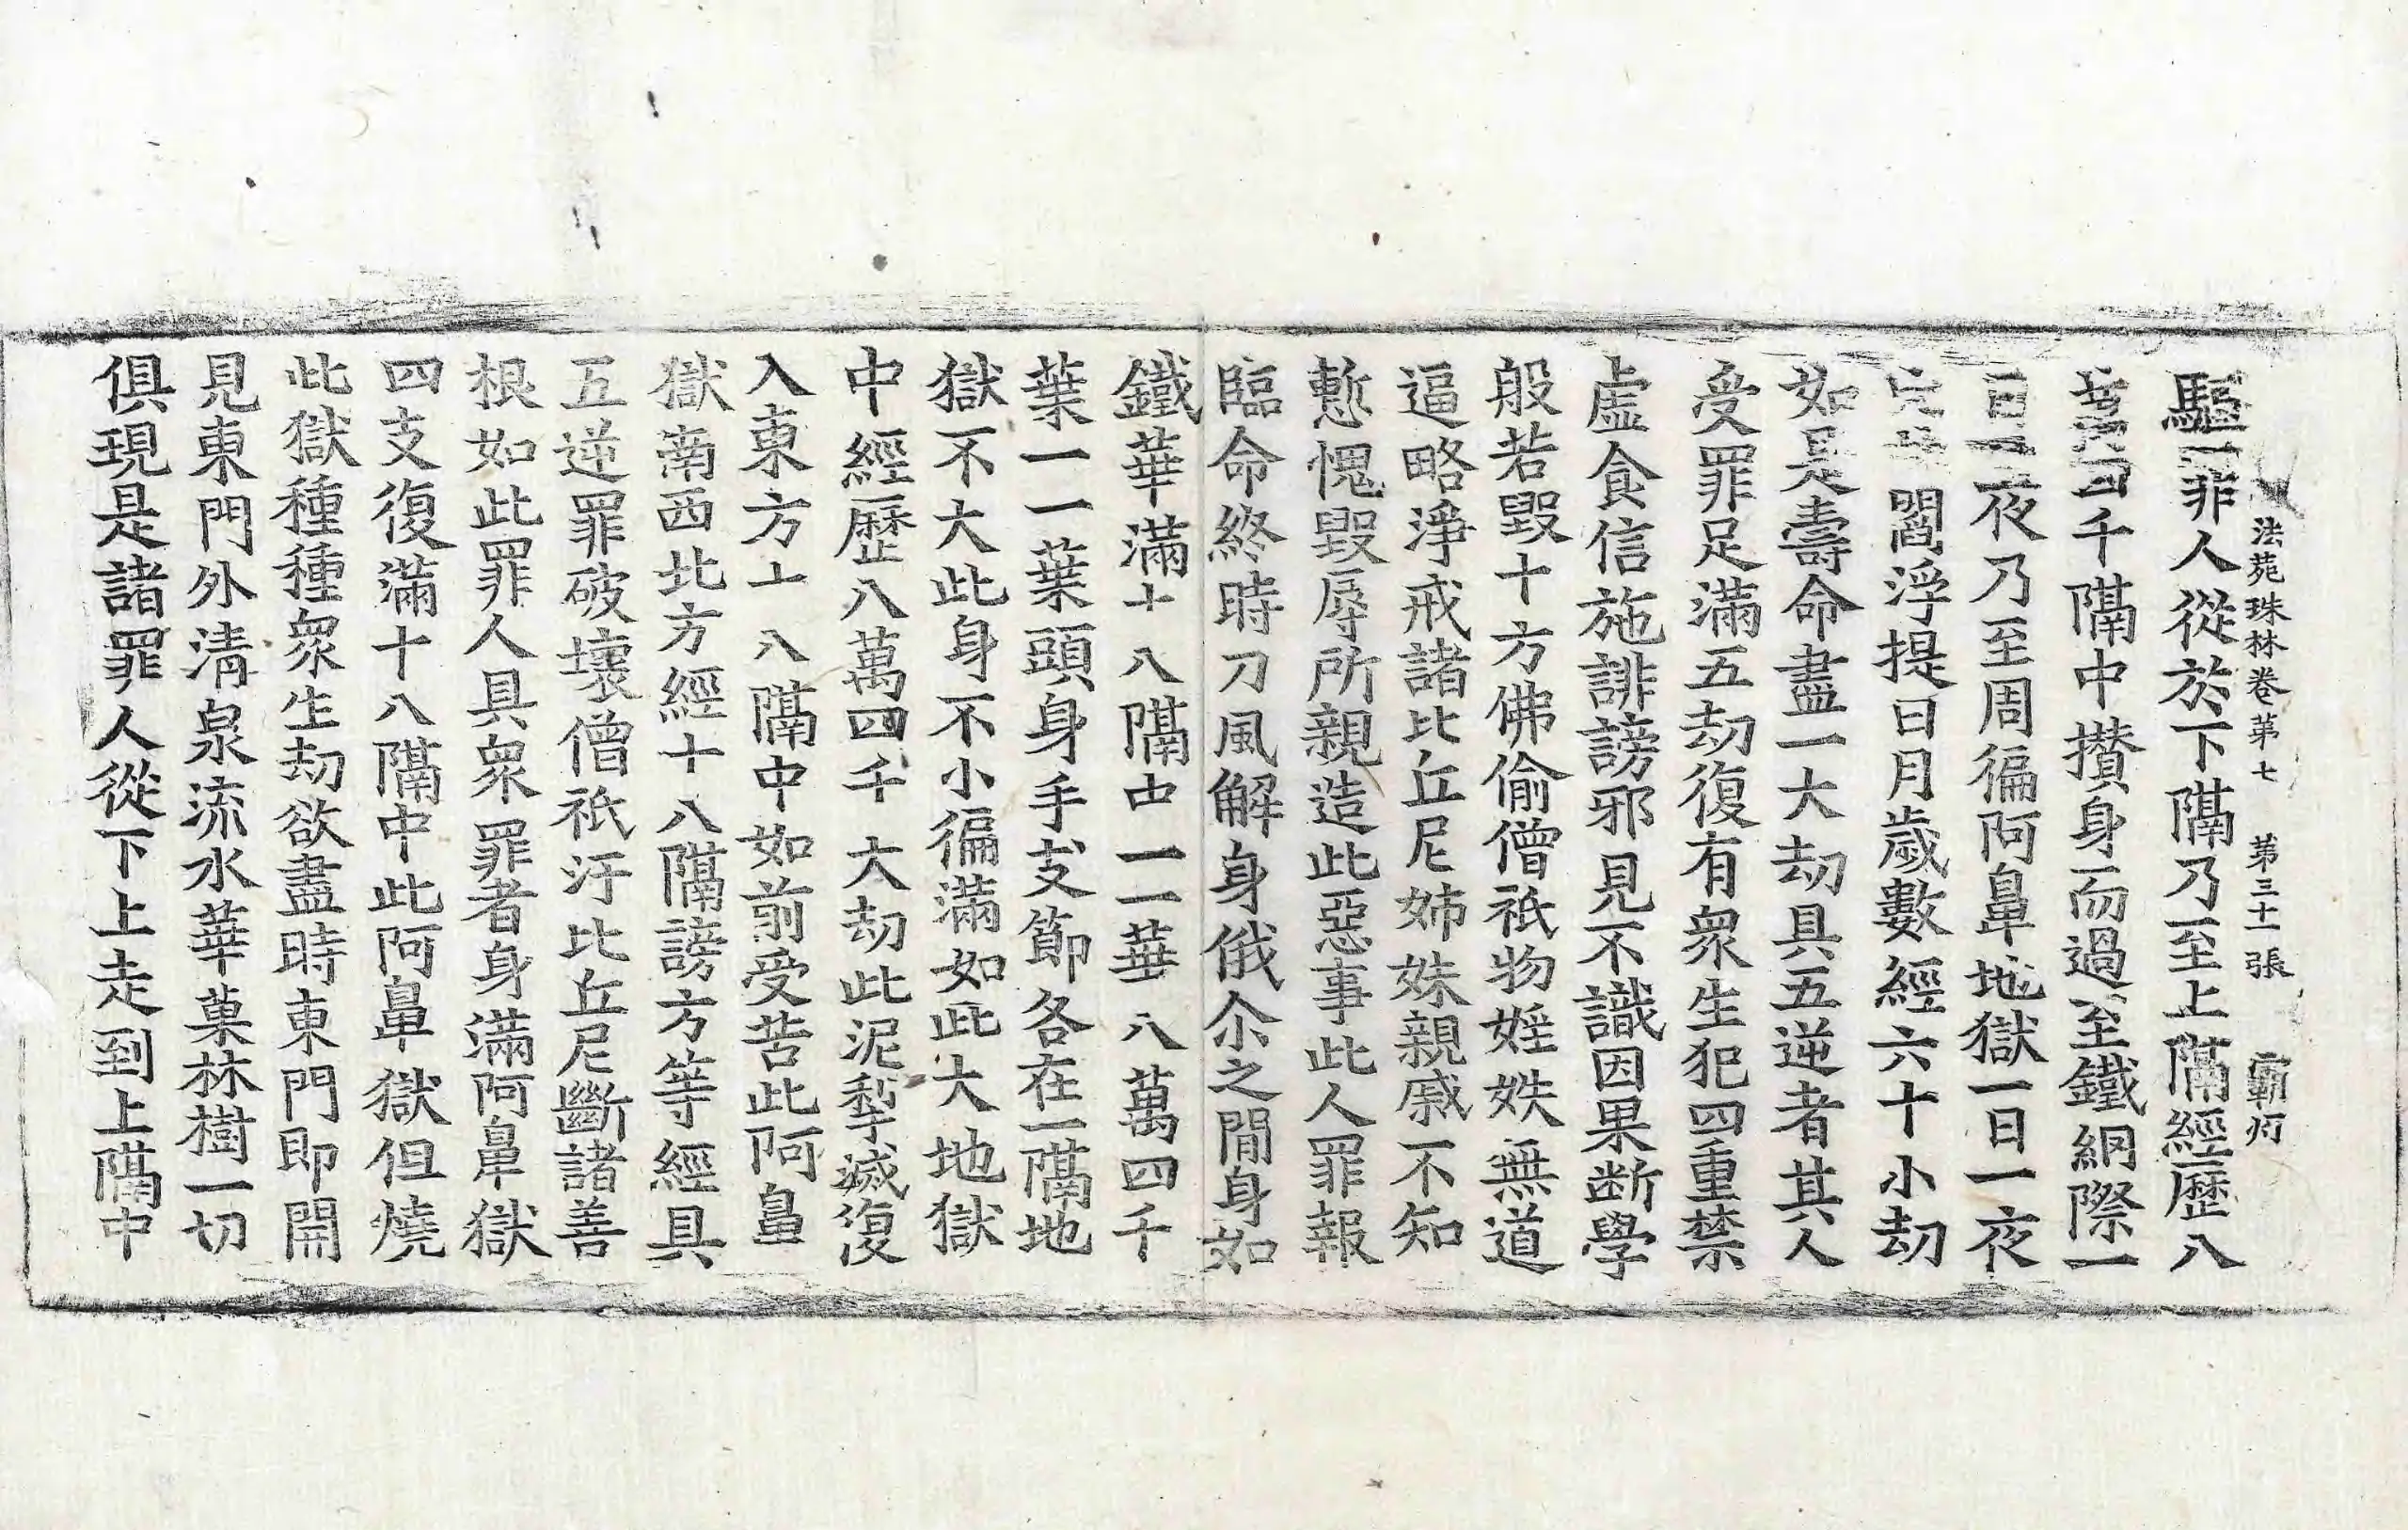 法苑珠林卷第七　第三十一張　覇
驅罪人從於下隔乃至上隔經歷八
萬四千隔中攢身而過至鐵網際一
日一夜乃至周徧阿鼻地獄一日一夜
閻浮提日月歲數經六十小劫
如是壽命盡一大劫具五逆者其人
受罪足滿五劫復有衆生犯四重禁
虛食信施誹謗邪見不識因果断學
般若毀十方佛偷僧祇物婬妷無道
逼略淨戒諸比丘尼姉妹親戚不知
慙愧毀辱所親造此惡事此人罪報
臨命終時刀風解身俄尒之間身如
鐵華滿十八隔中一一華八萬四千
葉一一葉頭身手支節各在一隔地
獄不大此身不小徧滿如此大地獄
中經歷八萬四千大劫此泥犁滅復
入東方十八隔中如前受苦此阿鼻
獄南西北方經十八隔謗方等經具
五逆罪破壞僧祇汙比丘尼斷諸善
根如此罪人具衆罪者身滿阿鼻獄
四支復滿十八隔中此阿鼻獄但燒
此獄種種衆生劫欲盡時東門即開
見東門外淸泉流水華菓林樹一切
俱現是諸罪人從下上走到上隔中